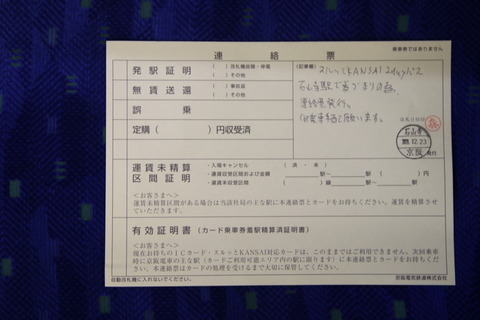 乗車券ではありません
連絡票
発駅証明 ( )自改札機故障・停電 ( )その他
無賃送還 ( )事故品 ( )その他
誤乗
定購( )円収受済
(記事欄)
スルッとKANSAI 2dayパス
石山寺駅で
連絡票発行。
願います。
改札日付印
石山寺
12.23
京阪 発行
運賃未精算
区間証明
・入場キャンセル ( 済 ・ 未 )
・運賃収受区間および金額 駅～ 駅 ( )円
・運賃未収受区間 ( ) 駅～ 駅
<お客さまへ>
運賃未精算区間がある場合は当該社局の主な駅に本連絡票とカードをお持ちください。運賃を精算させていただきます。
有効証明書(カード乗車券着駅精算済証明書)
<お客さまへ>
現在お持ちのICカード・スルッとKANSAI対応カードは、このままではご利用できません。次回乗車
時に京阪電車の主な駅(カードご利用可能エリア内の駅に限ります)に本連絡票とカードをお持ちくださ
い。本連絡票はカードの処理を受けるまで大切に保管してください。
自動改札機に入れないでください。
京阪電気鉄道株式会社